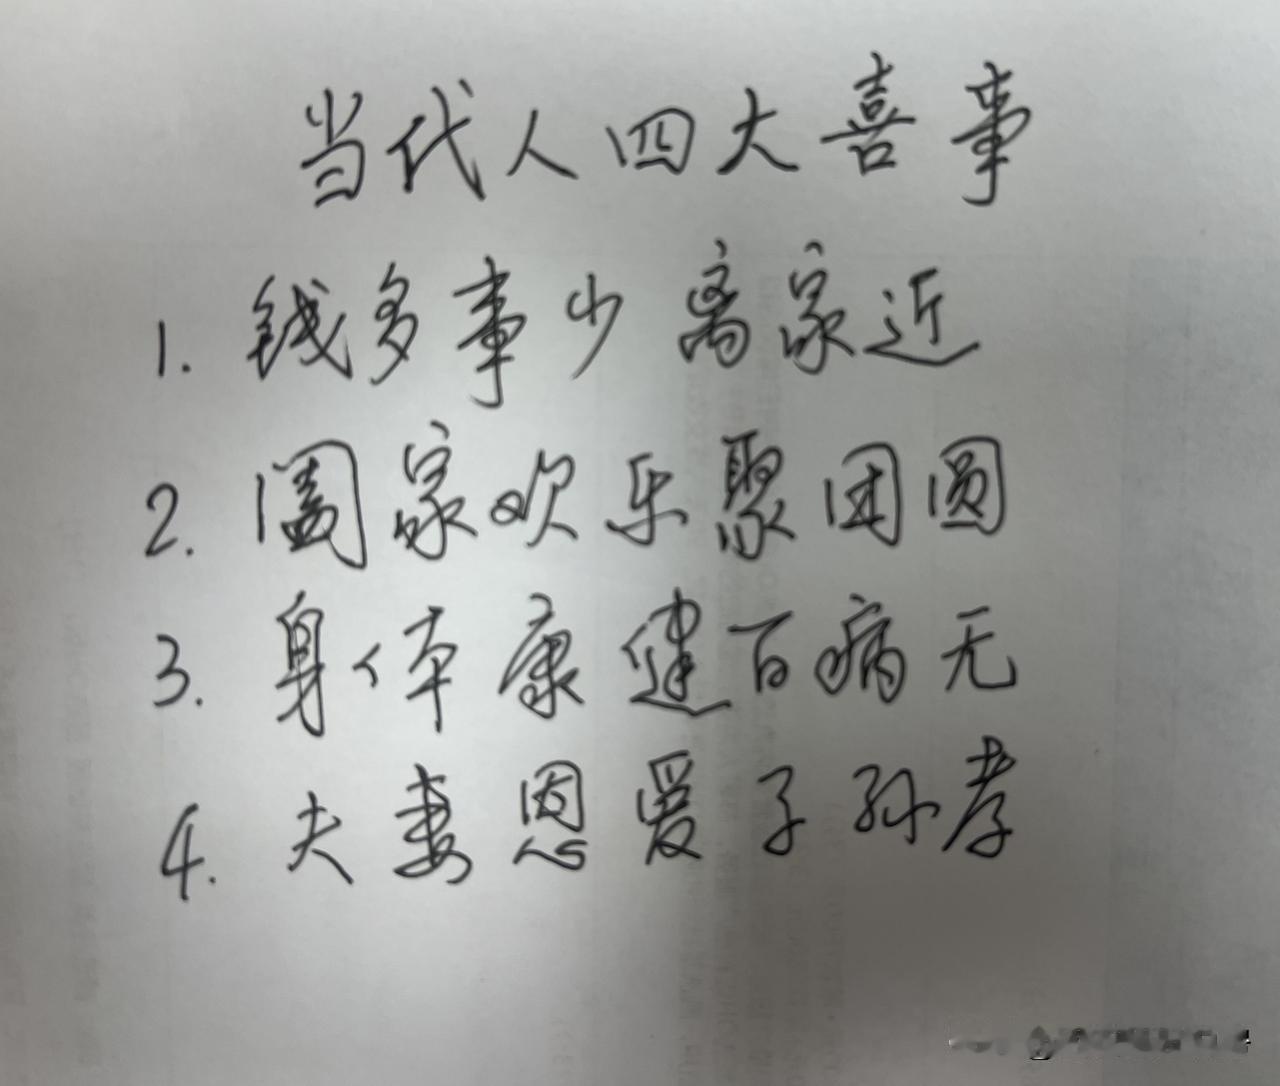 当代人四大喜事
1. 钱多事少离家近
2. 阖家欢乐聚团圆
3. 身体康健百病无
4. 夫妻恩爱子孙孝